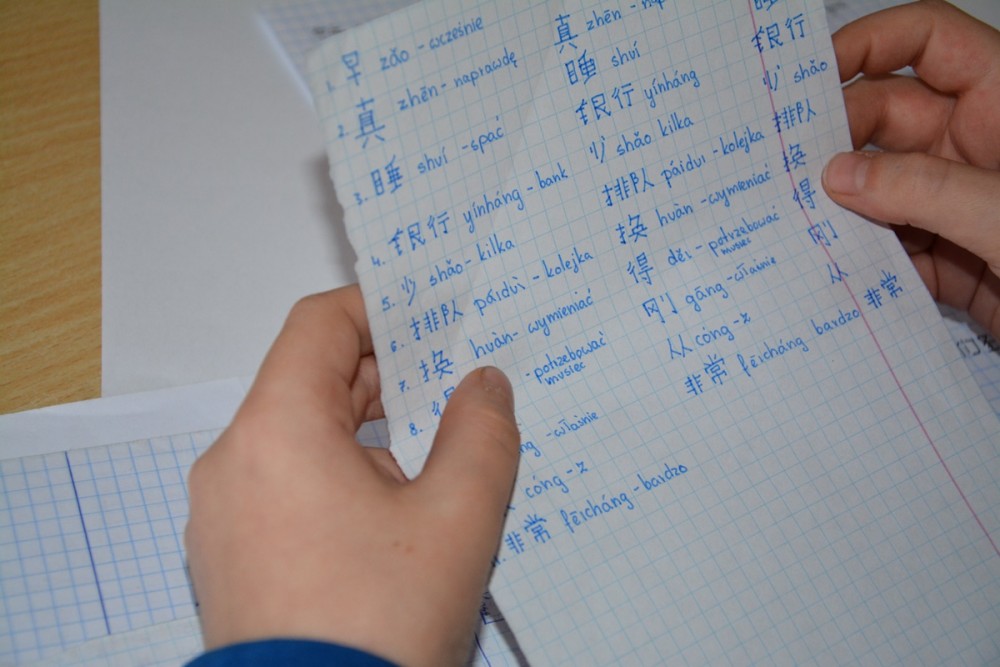 1. 早 zǎo - wcześnie
2. 真 zhēn - naprawdę
3. 睡 shuí - spać
4. 银行 yínháng - bank
5. 少 shǎo - kilka
6. 排队 páiduì - kolejka
7. 换 huàn - wymieniać
8. - potrzebować musieć
ng - właśnie
cóng - z
非常 fēicháng - bardzo
真 zhēn - nap
睡 shuí
银行 yínháng
少 shǎo kilka
排队 páiduì - kolejka
换 huàn - wymieniać
得 děi - potrzebować musieć
刚 gāng - właśnie
从 cóng - z
非常 fēicháng bardzo
银行
少 shǎo
排队
换
得
刚
从
非常